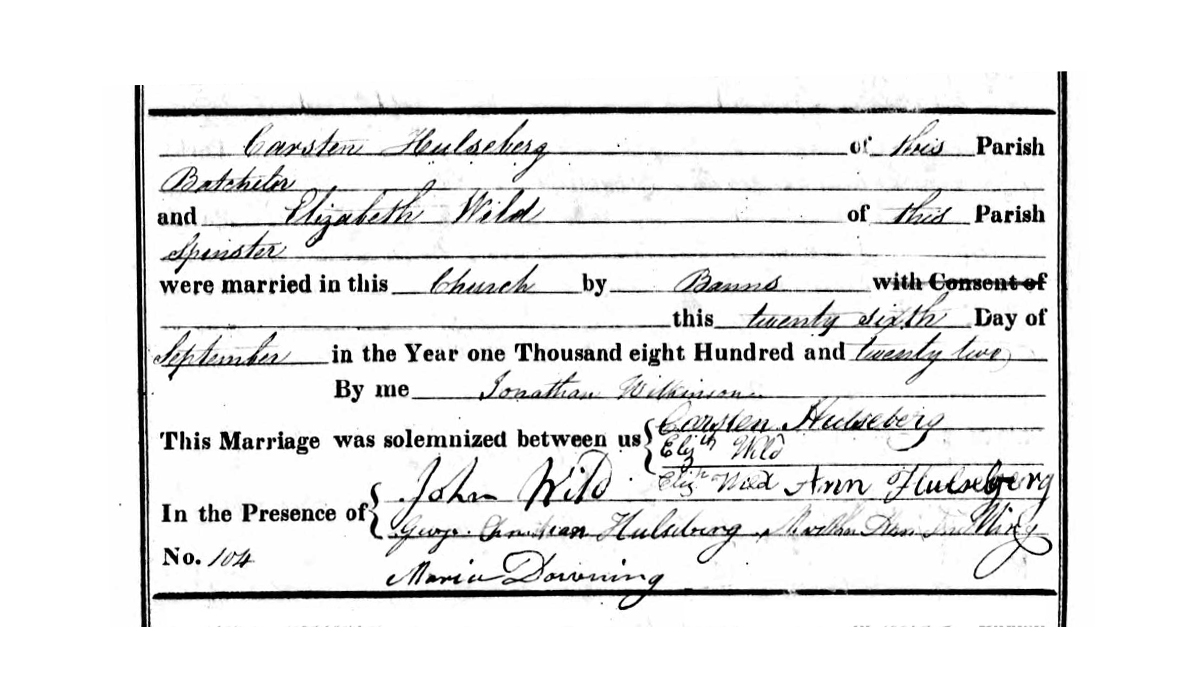 Carsten Hulseberg of this Parish
Batchelor
and Elizabeth Wild of this Parish
Spinster
were married in this Church by Banns with Consent of
this twenty sixth Day of
September in the Year one Thousand eight Hundred and twenty two
By me Jonathan Wilkinson
This Marriage was solemnized between us Carsten Hulseberg
Elizth Wild
John Wild Elizth Wild Ann Hulseberg
In the Presence of George Christian Hulseberg Martha Ann
No. 104
Maria Downing